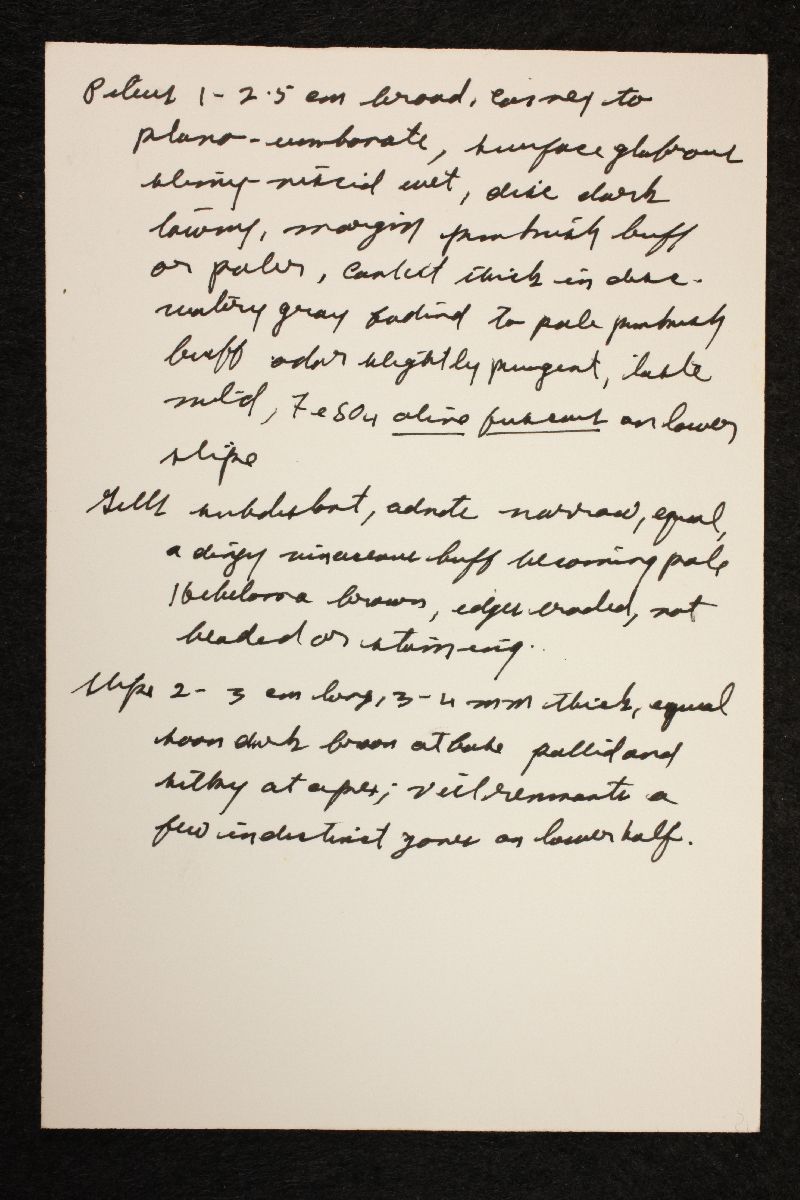 Pileus 1-2.5 cm broad, convex to
plano-umbonate, surface glabrous
slimy-viscid wet, disc dark
tawny, margin pinkish buff
or paler, context thick in disc.
watery gray fading to pale pinkish
buff odor slightly pungent, taste
mild, FeSO4 olive fuscous on lower
stipe
Gills subdistant, adnate narrow, equal,
a dingy vinaceous buff becoming pale
Hebeloma brown, edges eroded, not
beaded or staining.
Stipe 2-3 cm long, 3-4 mm thick, equal
soon dark brown at base pallid and
silky at apex; veil remnants a
few indistinct zones on lower half.